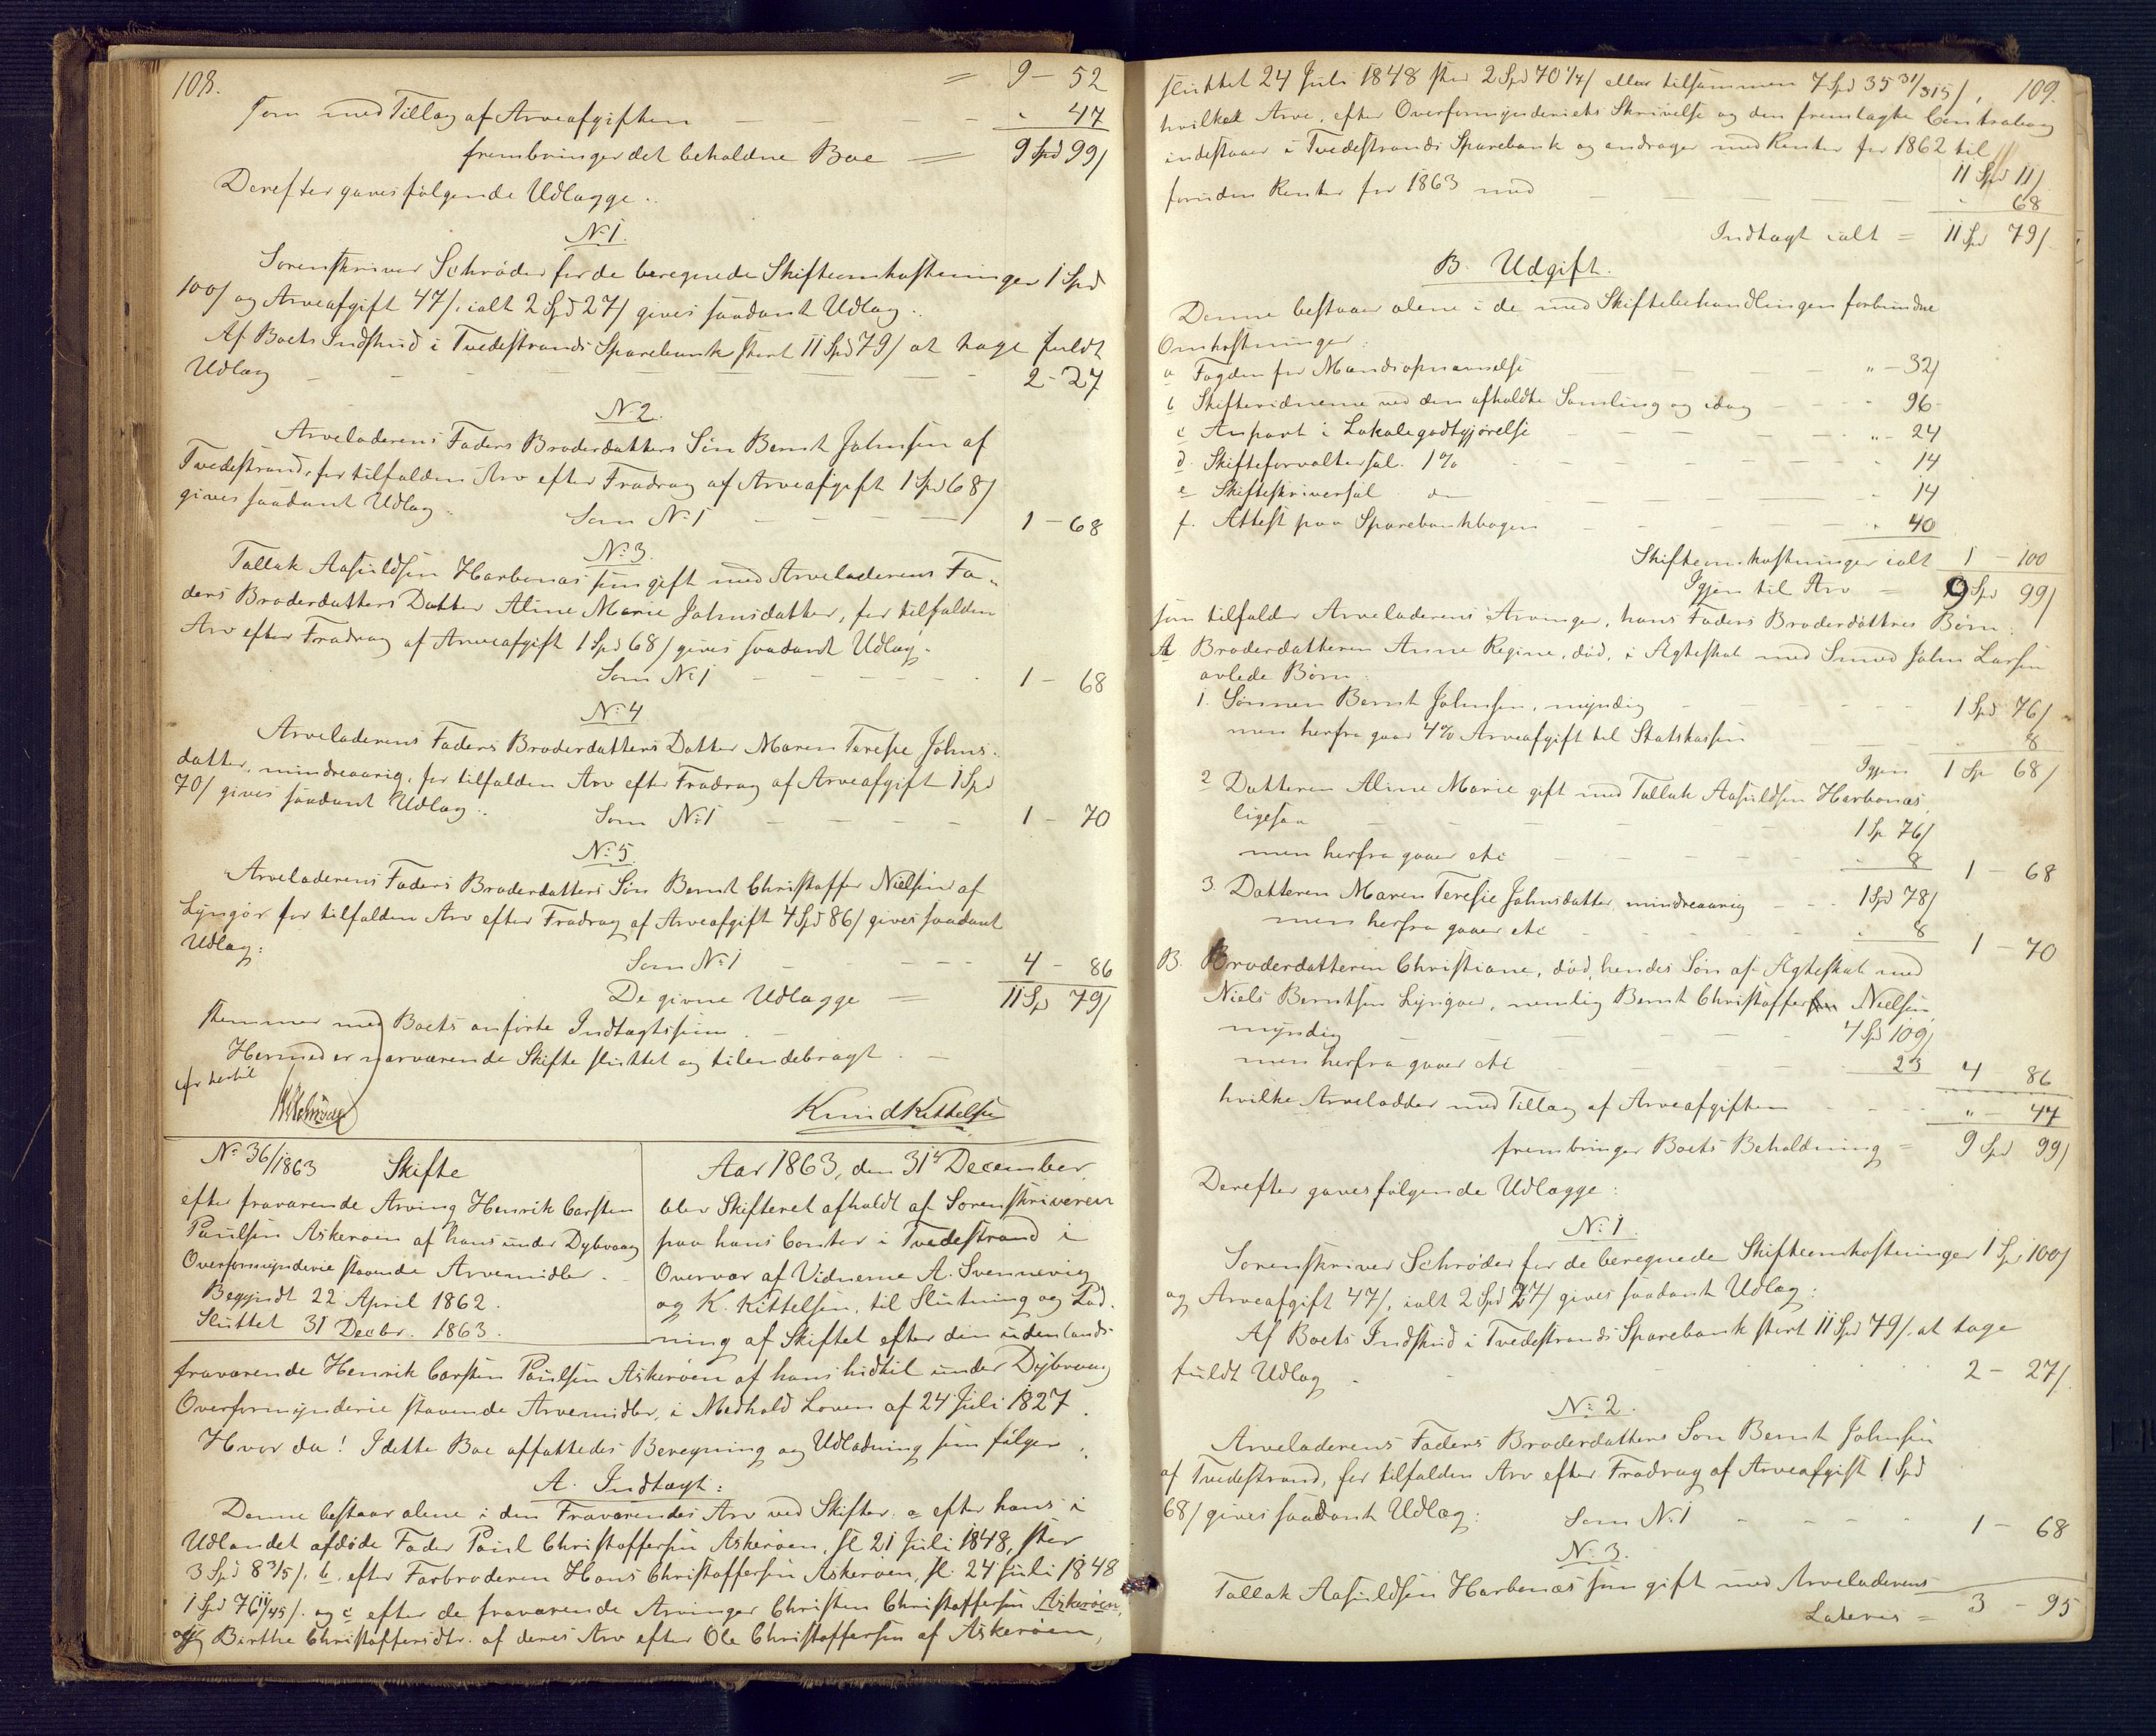 108.
= 9 - 52
som med Tillæg af Arveafgiften - - - " 47
frembringer det beholdne Boe = 9 Spd 99 /
Derefter gaves følgende Udlægge:
No 1.
Sorenskriver Schrøder for de beregnede Skifteomkostninger 1 Spd
100 / og Arveafgift 47 /, ialt 2 Spd 27 / gives saadant Udlæg:
Af Boets Indskud i Tvedestrands Sparebank stort 11 Spd 79 / at tage fuldt
Udlæg - - - - 2 - 27
No 2.
Arveladerens Faders Broderdatters Søn Bernt Johnsen af
Tvedestrand, for tilfalden Arv efter Fradrag af Arveafgift 1 Spd 68 /
gives saadant Udlæg: Som No 1 - - - 1 - 68
No 3.
Tallak Aasuldsen Harbonæs som gift med Arveladerens Fa-
ders Broderdatters Datter Aline Marie Johnsdatter, for tilfalden
Arv efter Fradrag af Arveafgift 1 Spd 68 / gives saadant Udlæg:
Som No 1 - - - - 1 - 68
No 4
Arveladerens Faders Broderdatters Datter Maren Teresie Johns-
datter, mindreaarig, for tilfalden Arv efter Fradrag af Arveafgift 1 Spd
70 / gives saadant Udlæg: Som No 1 - - - 1 - 70
No 5.
Arveladerens Faders Broderdatters Søn Bernt Christoffer Nielsen af
Lyngør for tilfalden Arv efter Fradrag af Arveafgift 4 Spd 86 / gives saadant
Udlæg: Som No 1 - - - - 4 - 86
De givne Udlægge = 11 Sp 79 /
stemmer med Boets anførte Indtægtssum. -
Hermed er nærværende Skifte sluttet og tilendebragt. -
Schrøder Knud Kittelsen
No 36/1863 Skifte
efter fraværende Arving Henrik Carsten
Paulsen Askerøen af hans under Dybvaag
Overformynderie staaende Arvemidler. -
Begyndt 22 April 1862.
Sluttet 31 Decbr. 1863.
Aar 1863, den 31te December
blev Skifteret afholdt af Sorenskriveren
paa hans Contor i Tvedestrand i
Overvær af Vidnerne A. Svennevig
og K. Kittelsen, til Slutning og Lad-
ning af Skiftet efter den udenlands
fraværende Henrik Carsten Paulsen Askerøen af hans hidtil under Dybvaag
Overformynderie staaende Arvemidler, i Medhold Loven af 24 Juli 1827.
Hvor da! I dette Boe affattedes Beregning og Udlodning som følger:
A. Indtægt:
Denne bestaar alene i den Fraværendes Arv ved Skifter: a efter hans i
Udlandet afdøde Fader Paul Christoffersen Askerøen, sl. 21 Juli 1848, stor
3 Spd 8 3/5 /. b. efter Farbroderen Hans Christoffersen Askerøen, sl. 24 Juli 1848
1 Spd 76 11/45 /. og c efter de fraværende Arvinger Christen Christoffersen Askerøen,
og Birthe Christoffersdtr. af deres Arv efter Ole Christoffersen af Askerøen,
109.
sluttet 24 Juli 1848 stor 2 Spd 70 1/7 / eller tilsammen 7 Spd 35 31/315 /,
hvilken Arv, efter Overformynderiets Skrivelse og den fremlagte Contrabog
indestaar i Tvedestrands Sparebank og andrager med Renter for 1862 til
11 Spd 11 /
foruden Renter for 1863 med - - - - " 68
Indtægt ialt = 11 Spd 79 /
B. Udgift.
Denne bestaar alene i de med Skiftebehandlingen forbundne
Omkostninger:
a Fogden for Mandsopnævnelse - - - " - 32 /
b Skiftevidnerne ved den afholdte Samling og idag - - - " 96 -
c Anpart i Lokalegodtgjørelse - - - " - 24
d. Skifteforvaltersal. 1 % - - - " 14
e Skifteskriversal do - - - " 14
f. Attest paa Sparebankbogen - - - " 40
Skifteomkostninger ialt 1 - 100
Igjen til Arv = 9 Spd 99 /
som tilfalder Arveladerens Arvinger, hans Faders Broderdøttres Børn:
A Broderdatteren Anne Regine, død, i Ægteskab med Smed John Larsen
avlede Børn:
1. Sønnen Bernt Johnsen, myndig - - - 1 Spd 76 /
men herfra gaar 4 % Arveafgift til Statskassen - - 8
Igjen 1 Sp 68 /
2 Datteren Aline Marie gift med Tallak Aasuldsen Harbonæs,
ligesaa - - - 1 Sp 76 /
men herfra gaaer etc - - - " 8 1 - 68
3. Datteren Maren Teresie Johnsdatter, mindreaarig - - - 1 Spd 78 /
men herfra gaaer etc - - - " 8 1 - 70
B. Broderdatteren Christiane, død, hendes Søn af Ægteskab med
Niels Berntsen Lyngøer, nemlig Bernt Christoffer Nielsen,
myndig - - - 4 Spd 109 /
men herfra gaaer etc - - - 23 4 86
hvilke Arvelodder med Tillæg af Arveafgiften - - - " - 47
frembringer Boets Beholdning = 9 Spd 99 /
Derefter gaves følgende Udlægge:
No 1.
Sorenskriver Schrøder for de beregnede Skifteomkostninger 1 Sp 100 /
og Arveafgift 47 /, ialt 2 Spd 27 / gives saadant Udlæg:
Af Boets Indskud i Tvedestrands Sparebank stort 11 Spd 79 /. at tage
fuldt Udlæg - - - 2 - 27 /.
No 2.
Arveladerens Faders Broderdatters Søn Bernt Johnsen
af Tvedestrand, for tilfalden Arv efter Fradrag af Arveafgift 1 Spd
68 / gives saadant Udlæg: Som No 1 - - - 1 - 68
No 3.
Tallak Aasuldsen Harbonæs som gift med Arveladerens
Lateris = 3 - 95